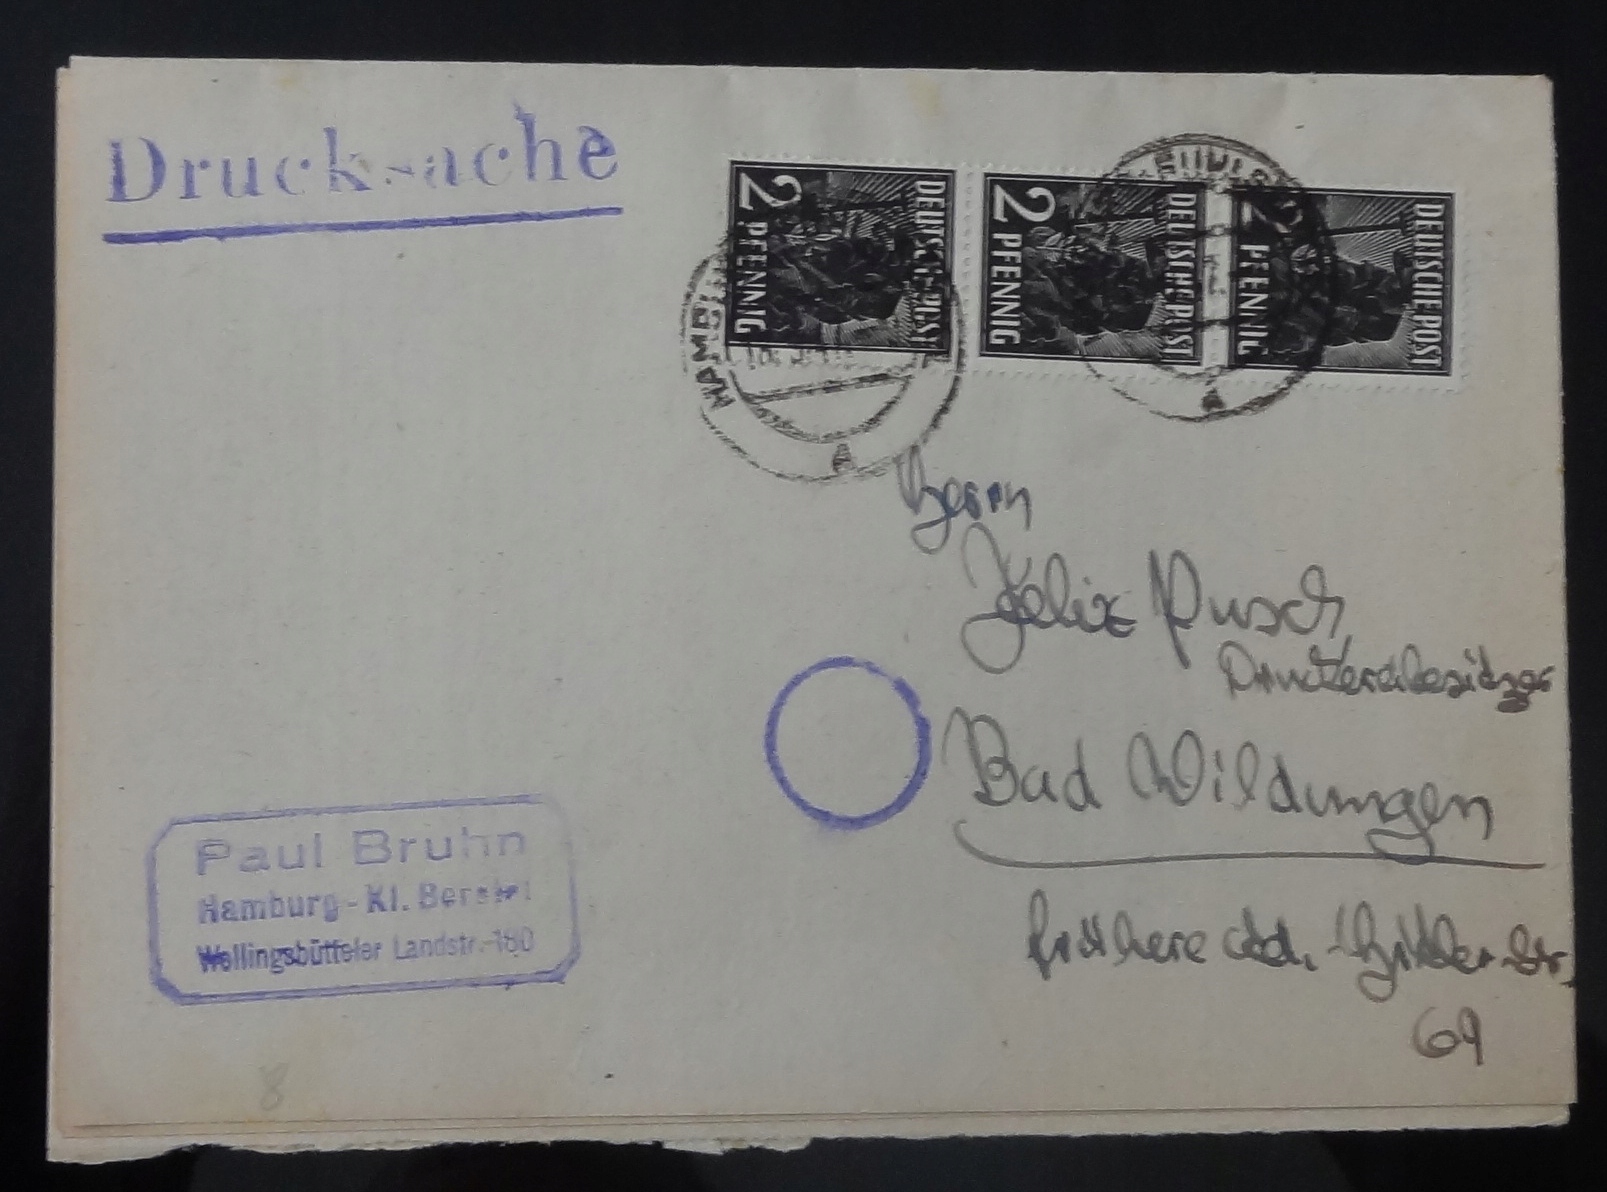 Drucksache
2 PFENNIG DEUTSCHE POST
2 PFENNIG DEUTSCHE POST
2 PFENNIG DEUTSCHE POST
HAMBURG
A
A
Herrn
Felix Pusch
Druckereibesitzer
Bad Wildungen
frühere Ad. Hitler Str.
69
Paul Bruhn
Hamburg-Kl. Borstel
Wellingsbütteler Landstr. 180
8